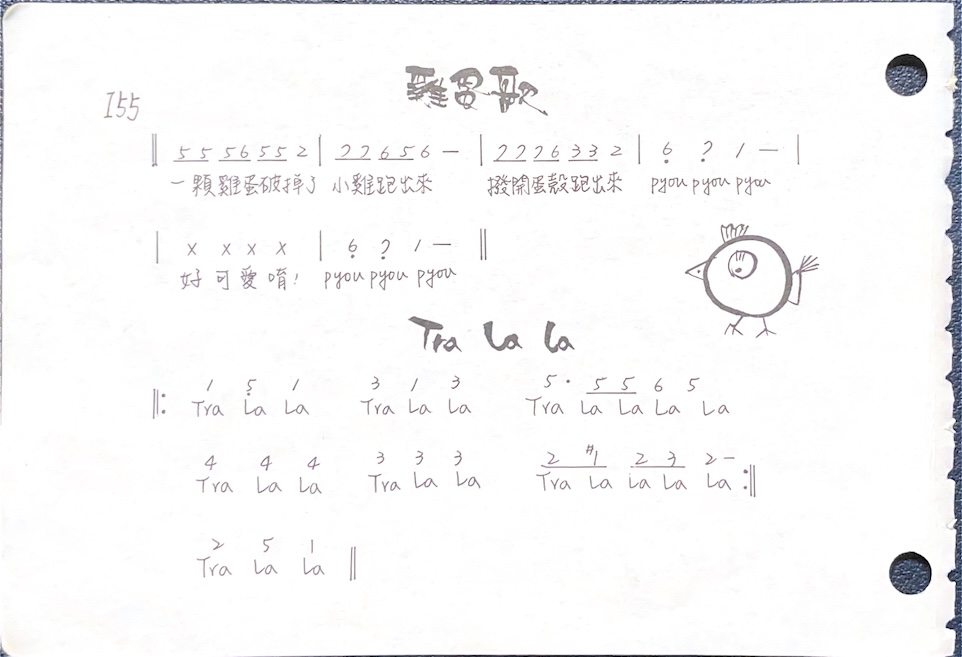 雞蛋歌
155
‖ 5 5 5 6 5 5 2 | 7 7 6 5 6 — | 7 7 7 6 3 3 2 | 6̣ 7̣ 1 — |
一顆雞蛋破掉了 小雞跑出來 撥開蛋殼跑出來 pyou pyou pyou
| x x x x | 6̣ 7̣ 1 — ‖
好可愛唷! pyou pyou pyou
Tra La La
‖: 1 5̣ 1 3 1 3 5· 5 5 6 5
Tra La La Tra La La Tra La La La La
4 4 4 3 3 3 2 #1 2 3 2 — :‖
Tra La La Tra La La Tra La La La La
2 5 1
Tra La La ‖